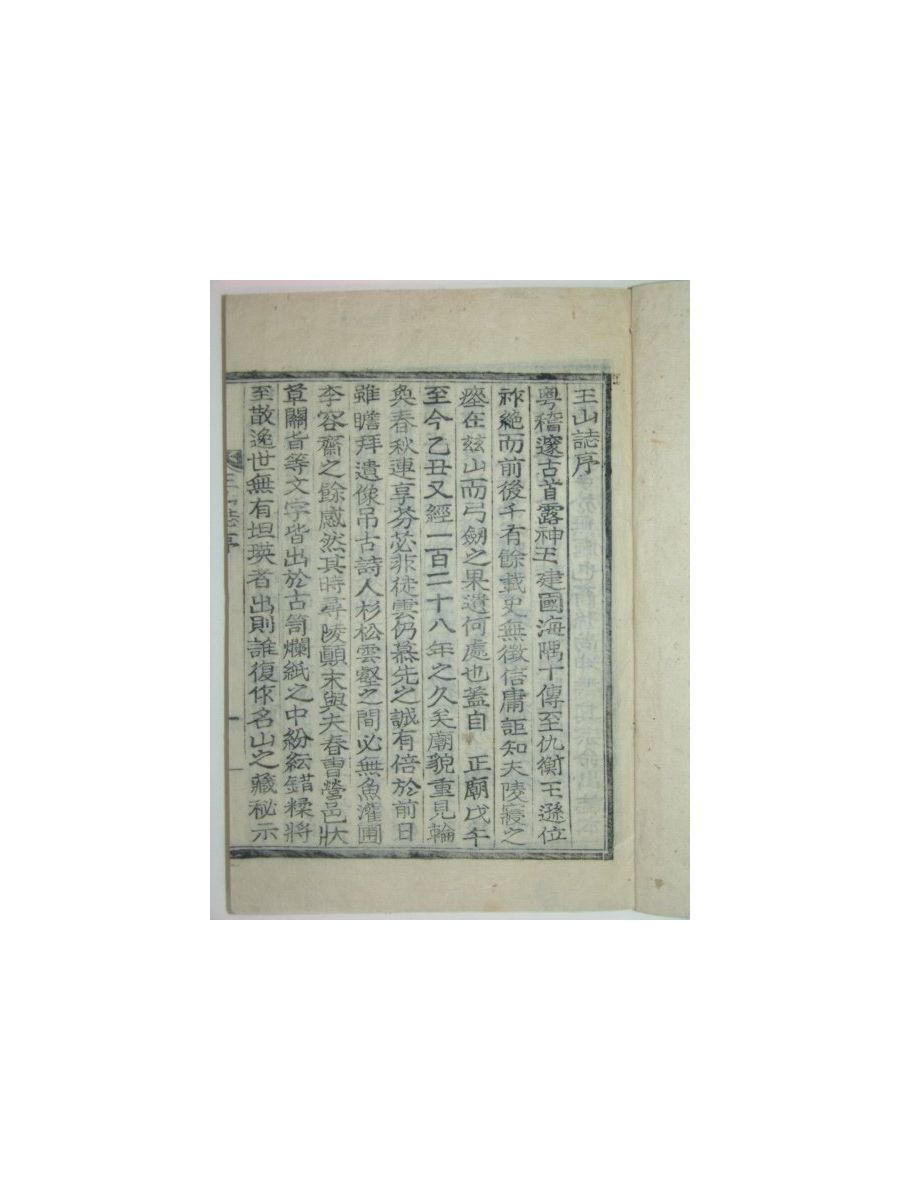 王山誌序
粤稽邃古首露神王建國海隅十傳至仇衡王遜位
祚絶而前後千有餘載史無徵信庸詎知夫陵寢之
瘞在玆山而弓劒之果遺何處也蓋自 正廟戊午
至今乙丑又經一百二十八年之久矣廟貌重見輪
奐春秋連享芬苾非徒雲仍慕先之誠有倍於前日
雖瞻拜遺像吊古詩人杉松雲壑之間必無魚灌圃
李容齋之餘感然其時尋陵顚末與夫春曺營邑狀
章關旨等文字皆出於古笥爛紙之中紛紜錯糅將
至散逸世無有坦瑛者出則誰復作名山之藏秘示
王山誌序
一